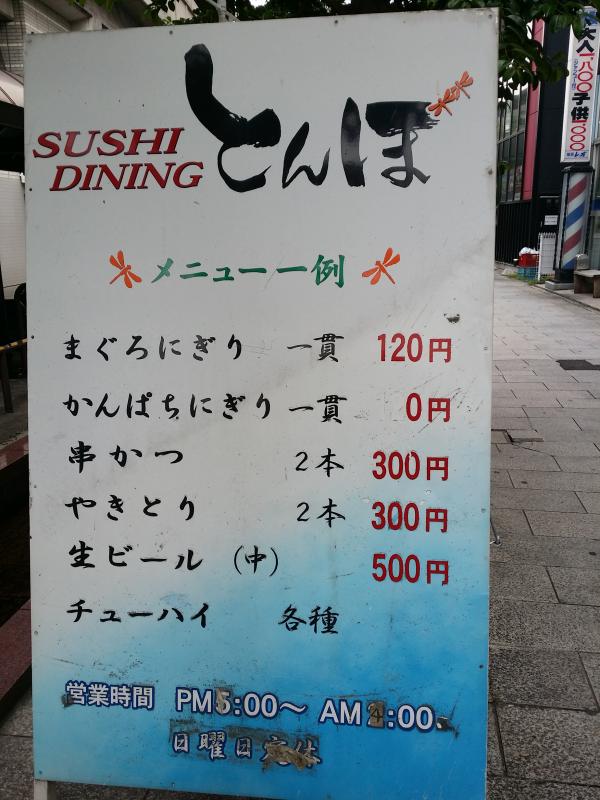 SUSHI
DINING
とんぼ
メニュー一例
まぐろにぎり 一貫 120円
かんぱちにぎり 一貫 0円
串かつ 2本 300円
やきとり 2本 300円
生ビール (中) 500円
チューハイ 各種
営業時間 PM5:00～ AM :00
日曜日定休
大人1,800子供1,000